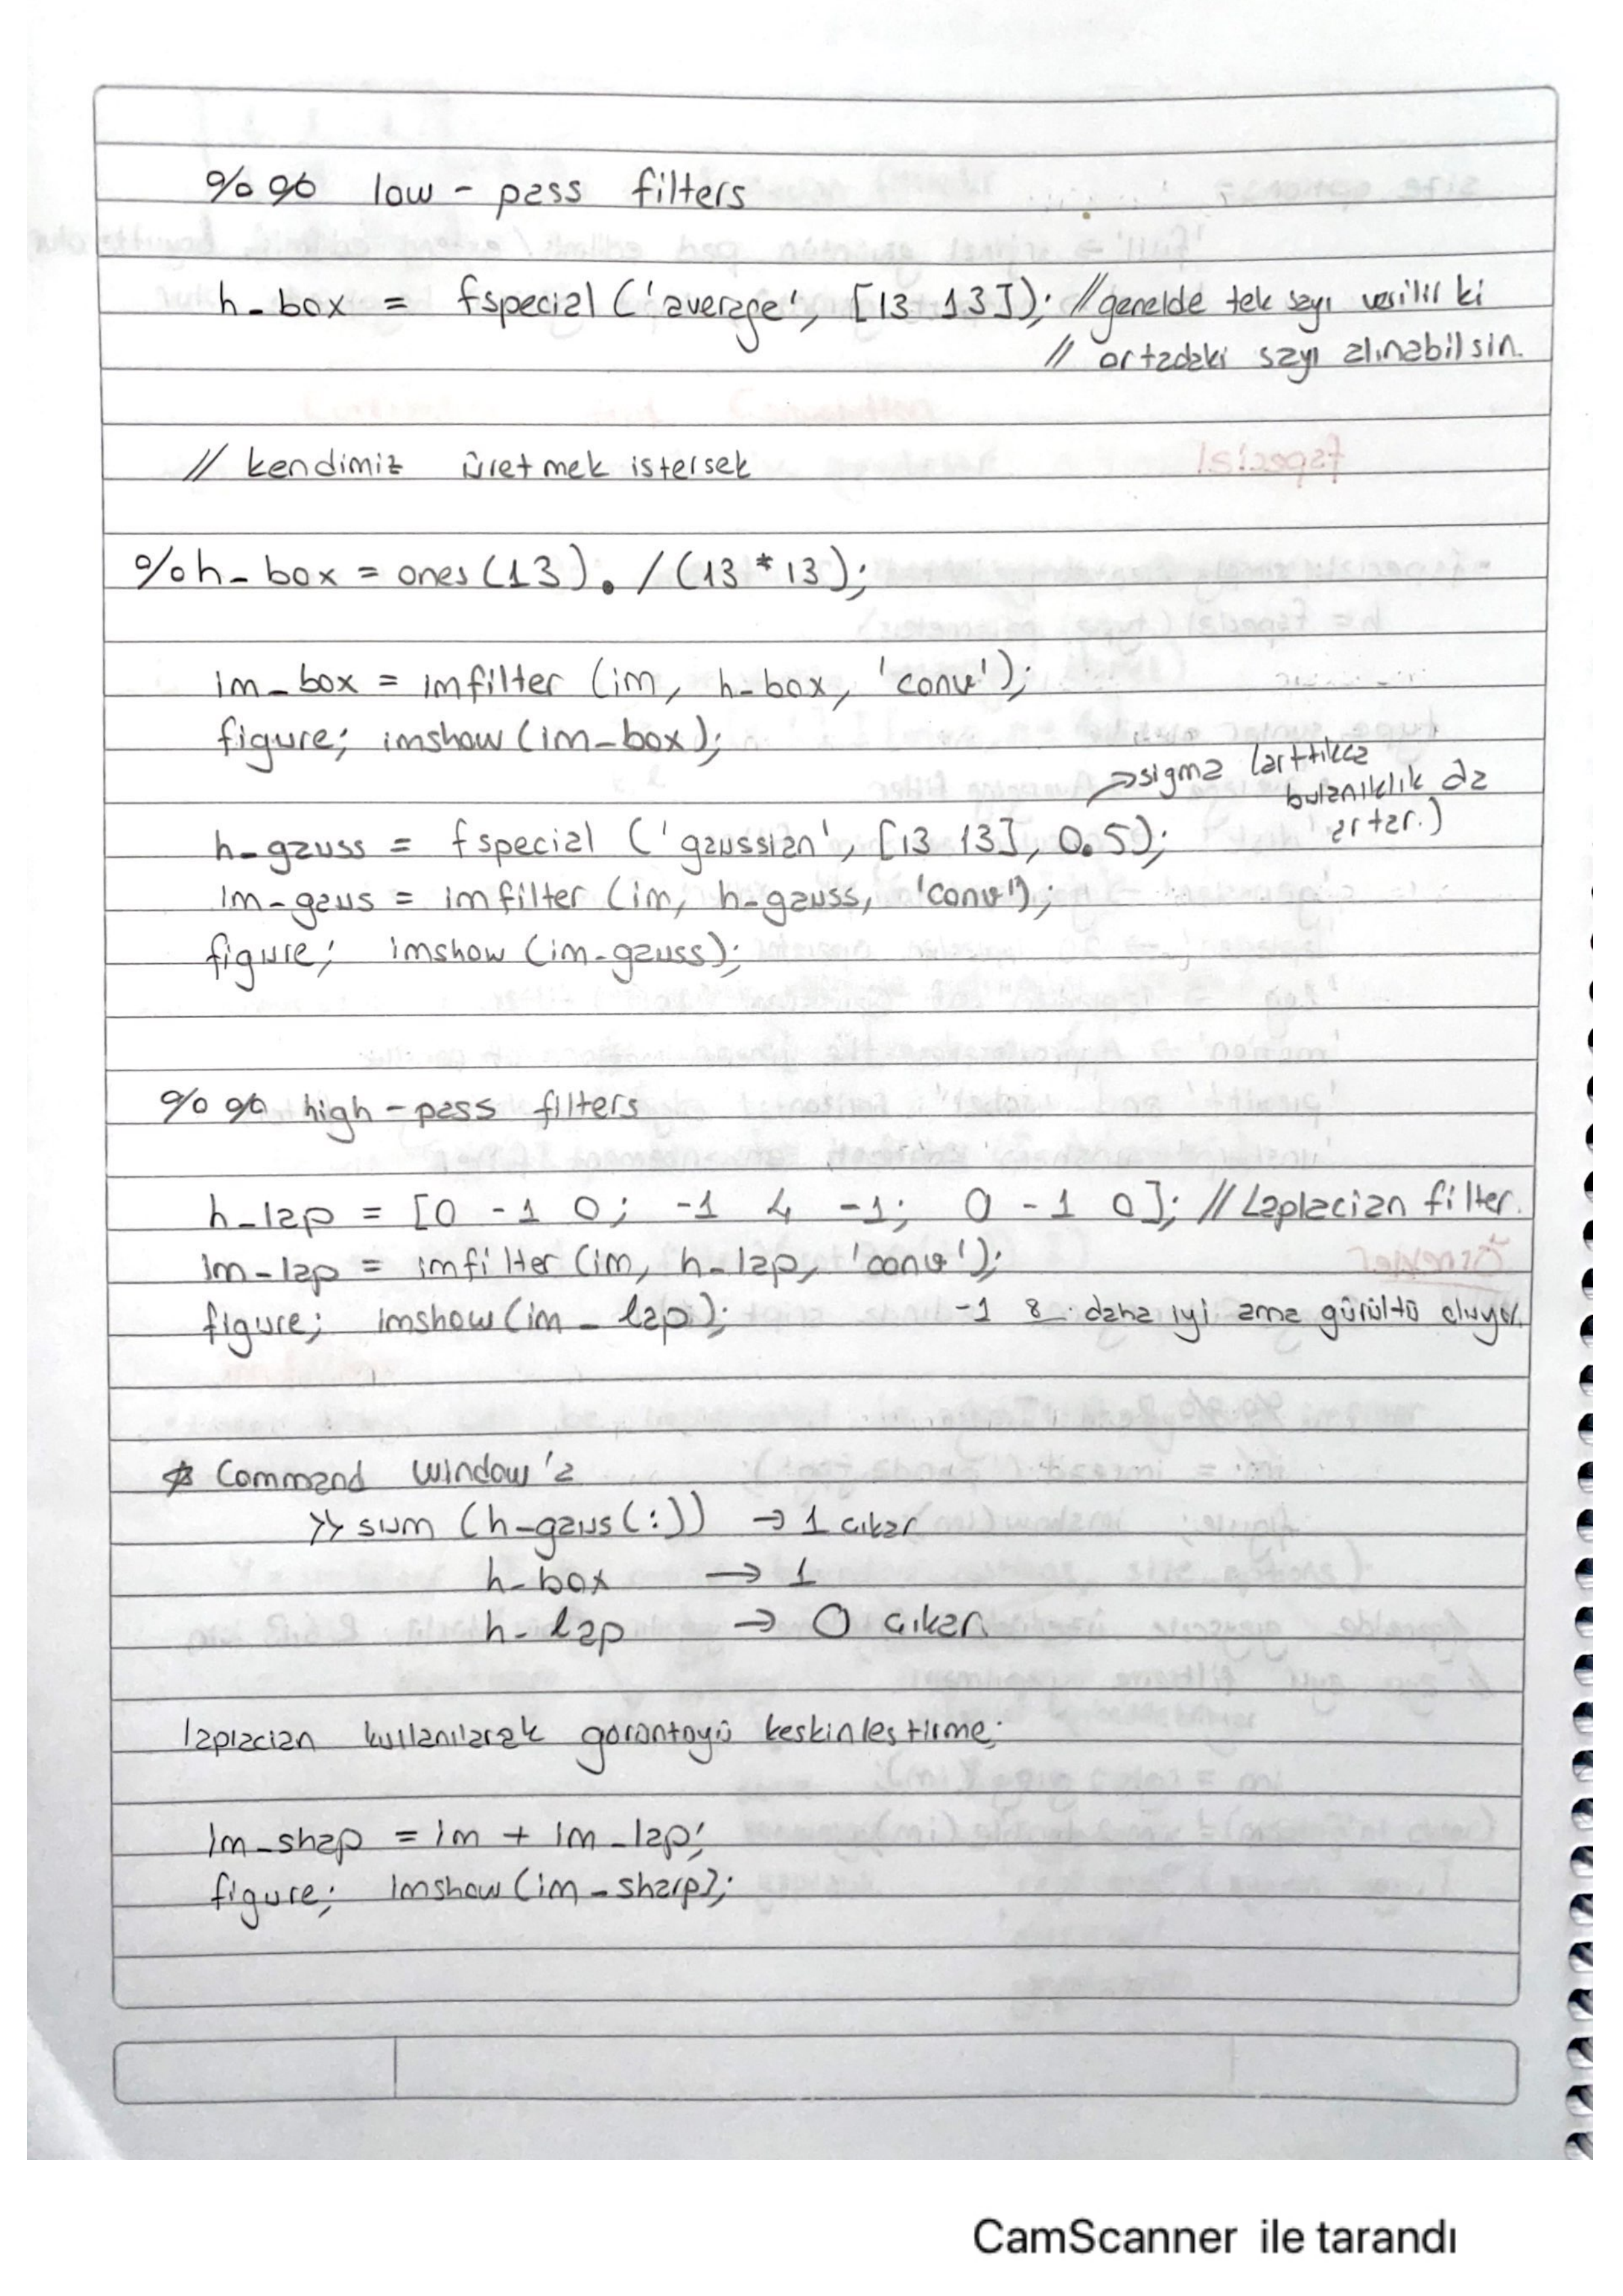 %% low-pass filters
h_box = fspecial ('average', [13 13]); // genelde tek sayı verilir ki
// ortadaki sayı alınabilsin.
// kendimiz üretmek istersek
%h_box = ones(13)./(13*13);
im_box = imfilter (im, h_box, 'conv');
figure; imshow(im_box);
→ sigma (arttıkca
bulanıklık da
artar.)
h_gauss = fspecial ('gaussian', [13 13], 0.5);
im_gaus = imfilter (im, h_gauss, 'conv');
figure; imshow (im_gauss);
%% high-pass filters
h_lap = [0 -1 0; -1 4 -1; 0 -1 0]; // Laplacian filter.
im_lap = imfilter (im, h_lap, 'conv');
figure; imshow(im_lap); -1 8 daha iyi ama gürültü oluyor.
* Command Window'a
>> sum (h_gaus(:)) → 1 cıkar
h_box → 1
h_lap → 0 cıkar.
laplacian kullanılarak görüntüyü keskinlestirme;
im_shap = im + im_lap;
figure; imshow (im_sharp);
CamScanner ile tarandı